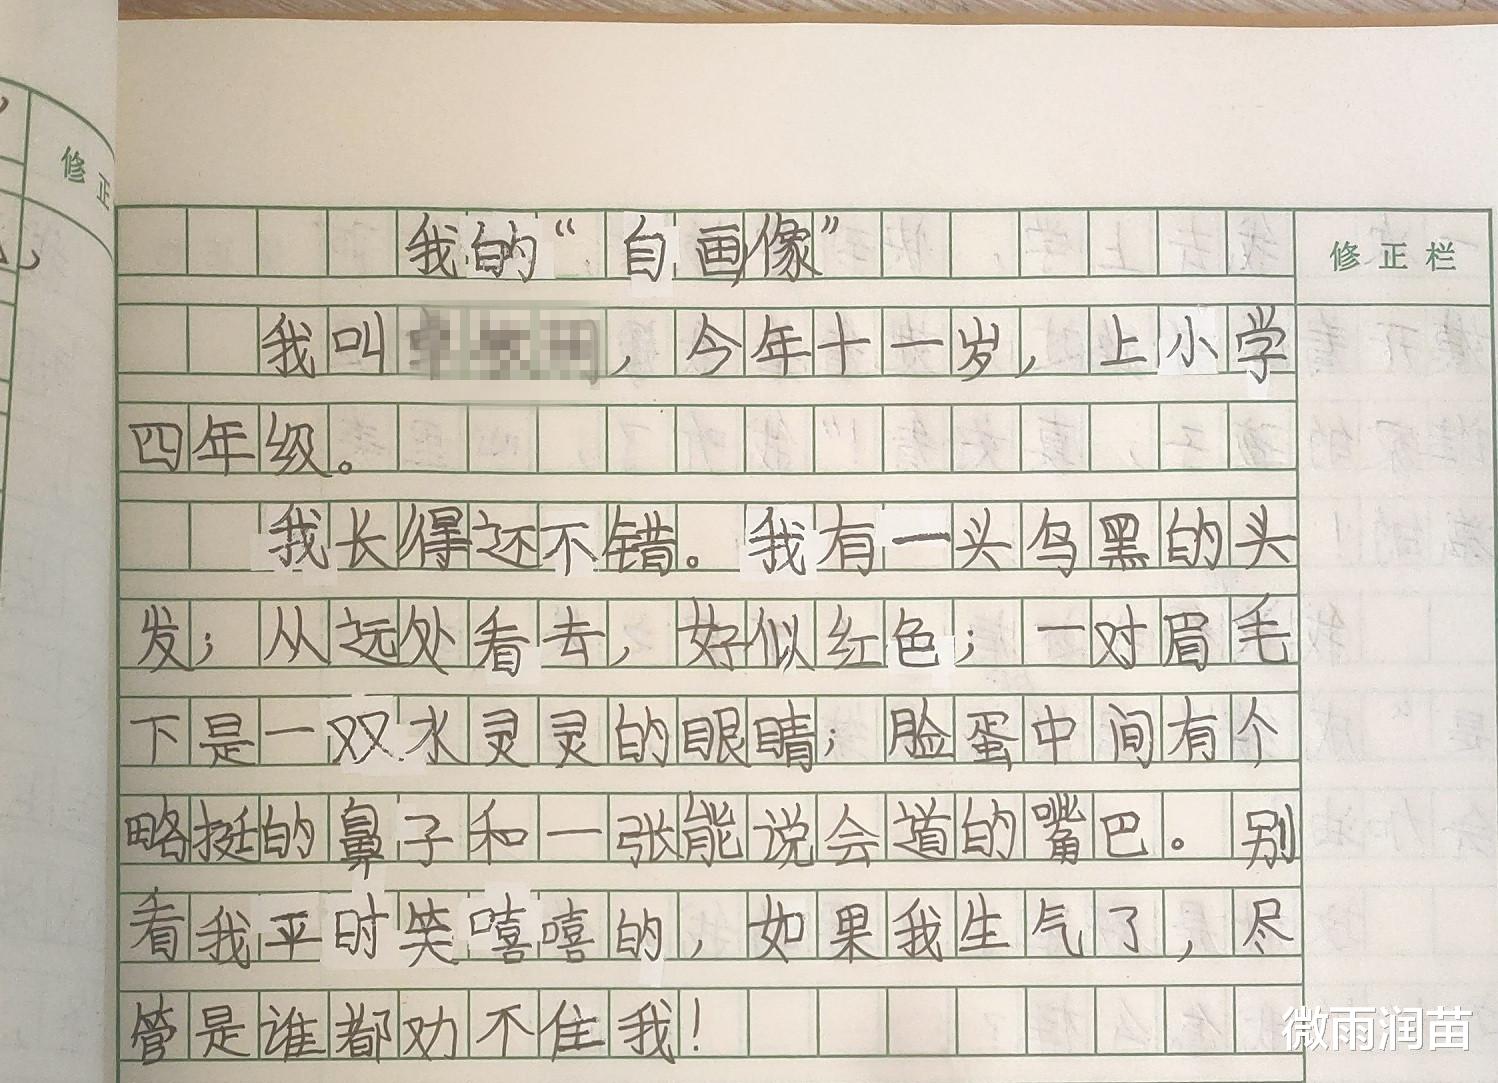 修正
我的“自画像”
修正栏
我叫，今年十一岁，上小学
四年级。
我长得还不错。我有一头乌黑的头
发；从远处看去，好似红色；一对眉毛
下是一双水灵灵的眼睛；脸蛋中间有个
略挺的鼻子和一张能说会道的嘴巴。别
看我平时笑嘻嘻的，如果我生气了，尽
管是谁都劝不住我！
微雨润苗